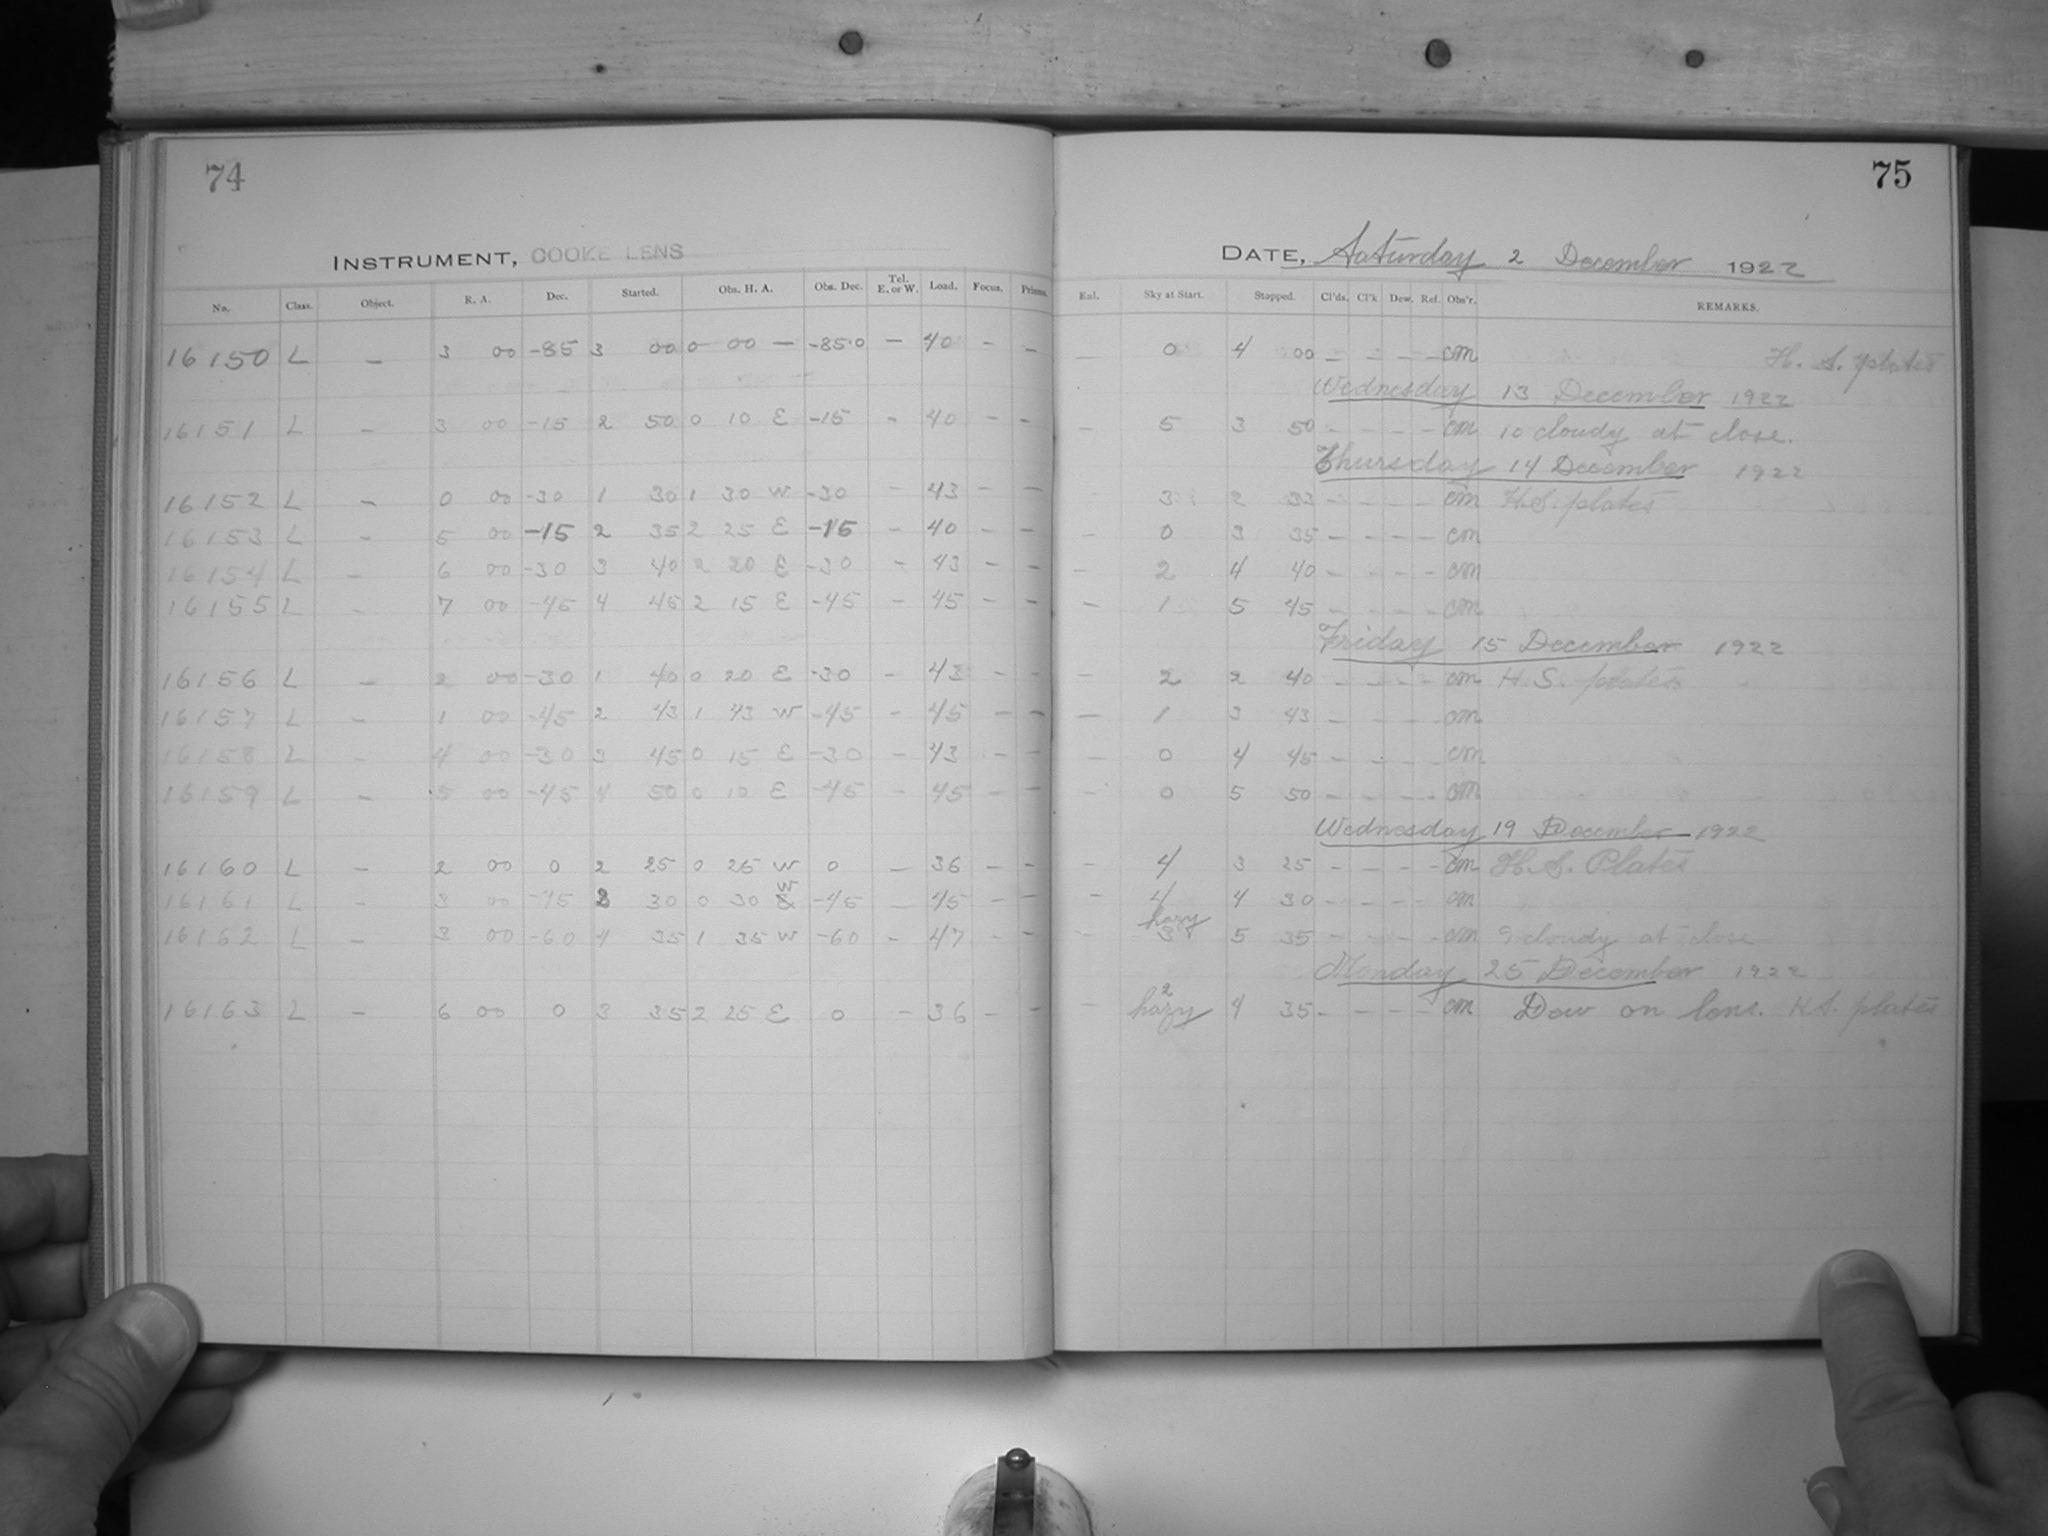 74
INSTRUMENT, COOKE LENS
No. Class. Object. R. A. Dec. Started. Obs. H. A. Obs. Dec. Tel. E. or W. Load. Focus. Prisms.
16150 L — 3 00 -85 3 00 0 00 — -85.0 — 40 — —
16151 L — 3 00 -15 2 50 0 10 E -15 — 40 — —
16152 L — 0 00 -30 1 30 1 30 W -30 — 43 — —
16153 L — 5 00 -15 2 35 2 25 E -15 — 40 — —
16154 L — 6 00 -30 3 40 2 20 E -30 — 43 — —
16155 L — 7 00 -45 4 45 2 15 E -45 — 45 — —
16156 L — 2 00 -30 1 40 0 20 E -30 — 43 — —
16157 L — 1 00 -45 2 43 1 43 W -45 — 45 — —
16158 L — 4 00 -30 3 45 0 15 E -30 — 43 — —
16159 L — 5 00 -45 4 50 0 10 E -45 — 45 — —
16160 L — 2 00 0 2 25 0 25 W 0 — 36 — —
16161 L — 3 00 -45 3 30 0 30 W -45 — 45 — —
16162 L — 3 00 -60 4 35 1 35 W -60 — 47 — —
16163 L — 6 00 0 3 35 2 25 E 0 — 36 — —
75
DATE, Saturday 2 December 1922
Enl. Sky at Start. Stopped. Cl'ds. Cl'k Dew. Ref. Obs'r. REMARKS.
— 0 4 00 — — — — CM H. S. plates
Wednesday 13 December 1922
— 5 3 50 — — — — CM 10 cloudy at close.
Thursday 14 December 1922
— 3 2 33 — — — — CM H.S. plates
— 0 3 35 — — — — CM
— 2 4 40 — — — — CM
— 1 5 45 — — — — CM
Friday 15 December 1922
— 2 2 40 — — — — CM H. S. plates
— 1 3 43 — — — — CM
— 0 4 45 — — — — CM
— 0 5 50 — — — — CM
Wednesday 19 December 1922
— 4 3 25 — — — — CM H. S. Plates
— 4 hazy 4 30 — — — — CM
— 3 5 35 — — — — CM 9 cloudy at close
Monday 25 December 1922
— 2 hazy 4 35 — — — — CM Dew on lens. H.S. plates